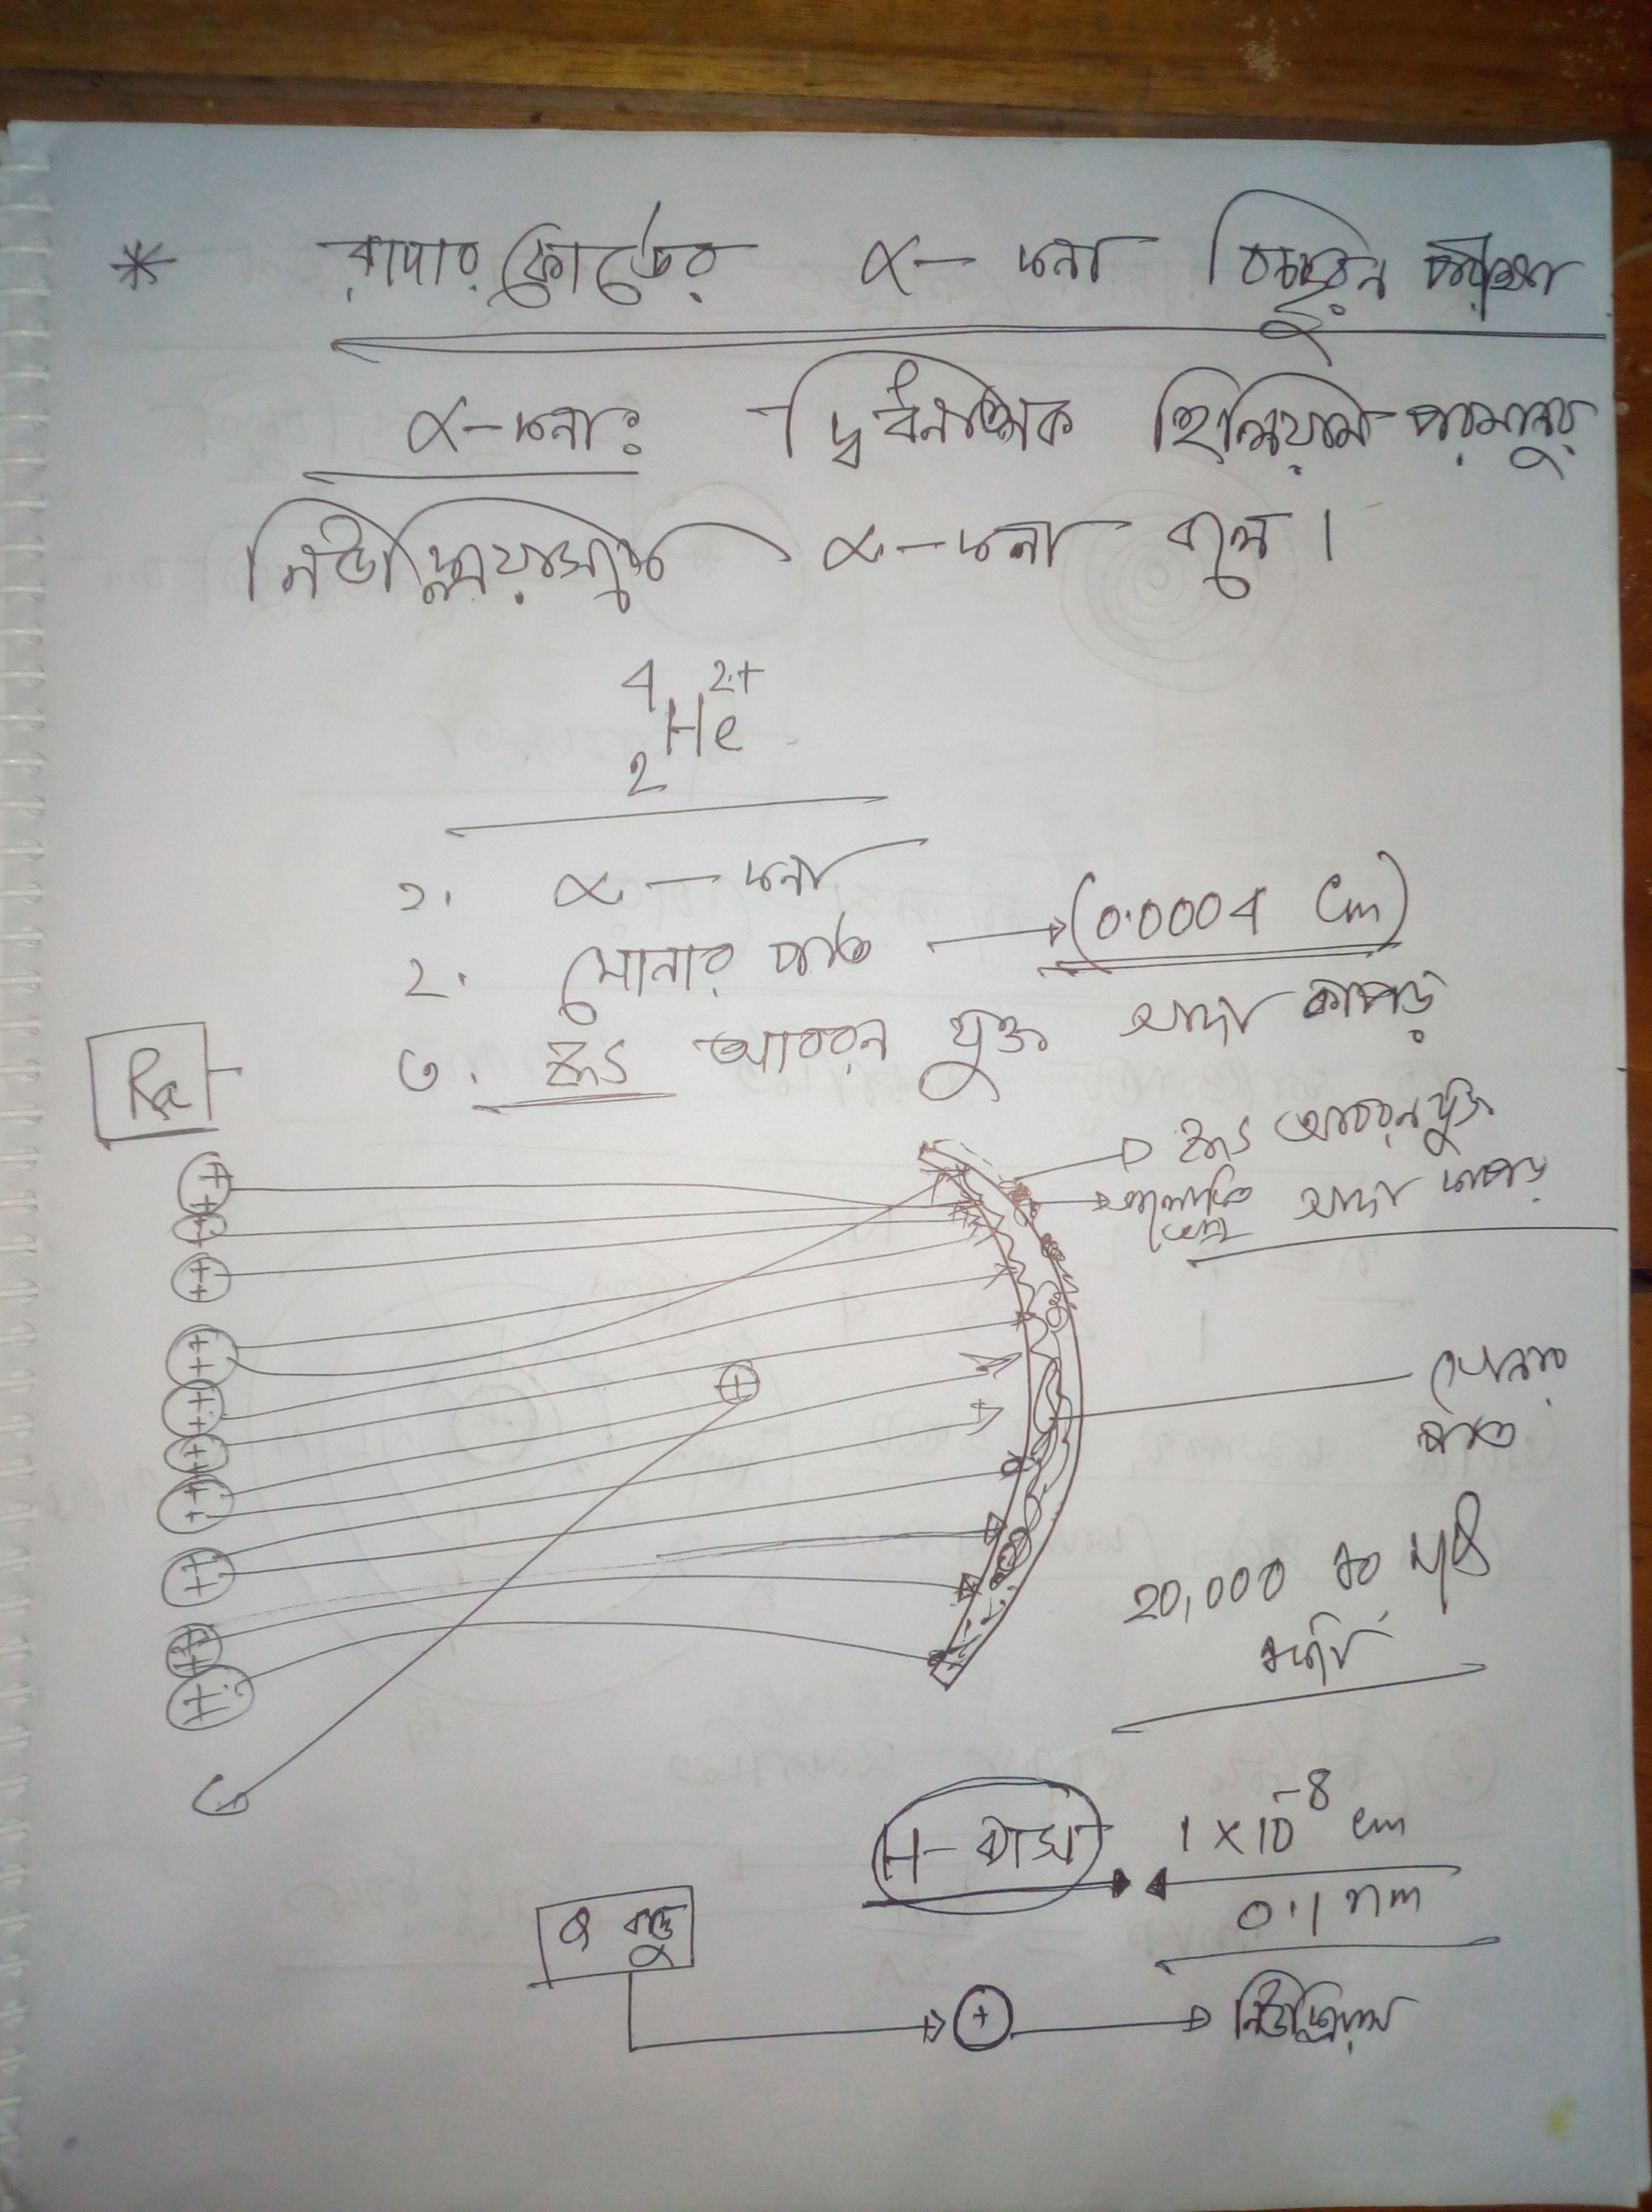 * রাদার ফোর্ডের α- কনা বিচ্ছুরন পরীক্ষা
α-কনাঃ দ্বিধনাত্মক হিলিয়াম পরমানুর
নিউক্লিয়াসকে α-কনা বলে।
4 2+
He
2
১. α - কনা
২. সোনার পাত → (0.0004 cm)
৩. ZnS আবরন যুক্ত সাদা কাপড়
Ra
ZnS আবরনযুক্ত
সাদা কাপড়
সোনার
পাত
20,000
H- ব্যাস 1 x 10⁻⁸ cm
0.1 nm
+ → নিউক্লিয়াস